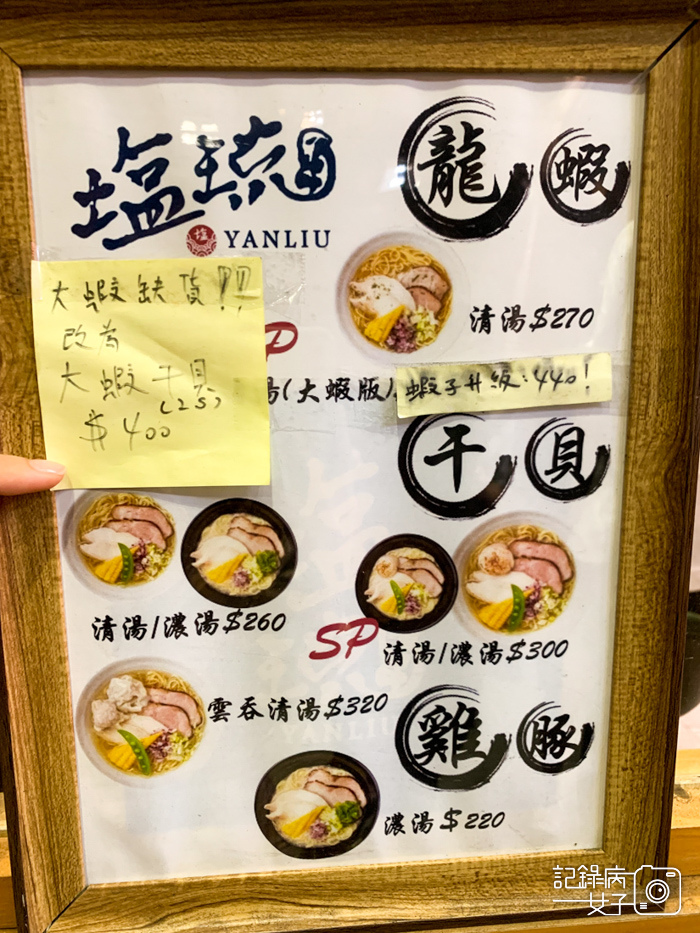 塩琉
YANLIU
龍蝦
清湯$270
大蝦缺貨!!
改為
大蝦干貝
(2S)
$400
P
湯(大蝦版)
蝦子升級:440!
干貝
清湯/濃湯$260
SP
清湯/濃湯$300
雲吞清湯$320
雞豚
濃湯$220
記錄病
女子